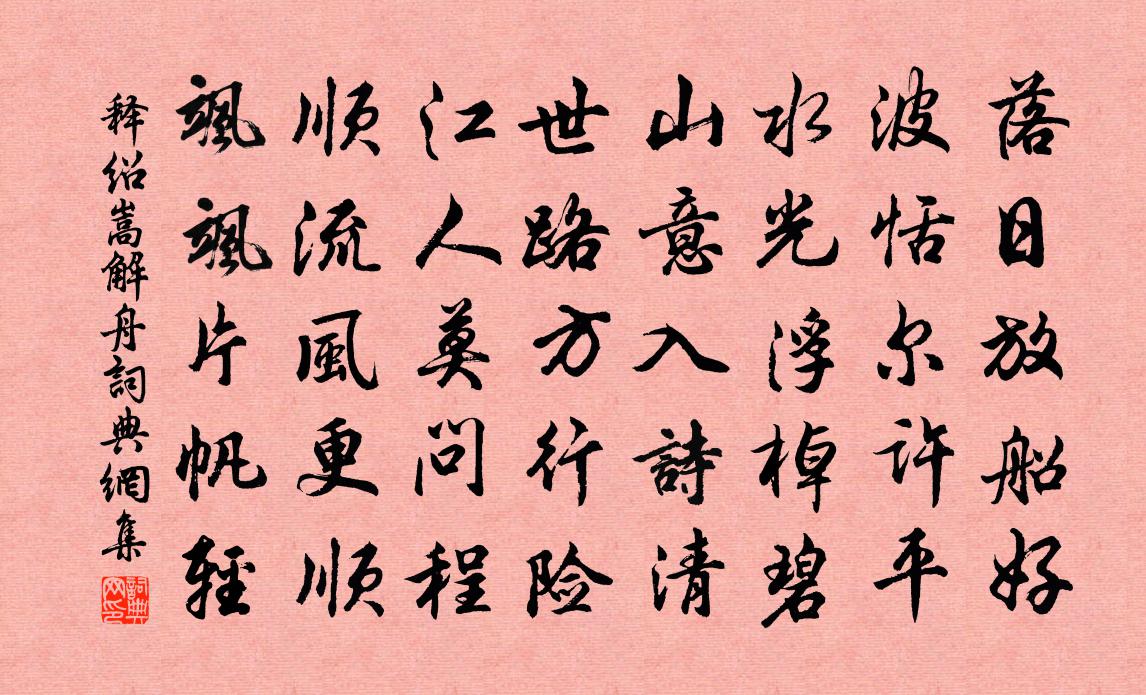 落日放船好
波恬尔许平
水光浮棹碧
山意入詩清
世路方行险
江人莫问程
順流風更順
颯颯片帆輕
释绍嵩解舟詞典網集
詞典网印